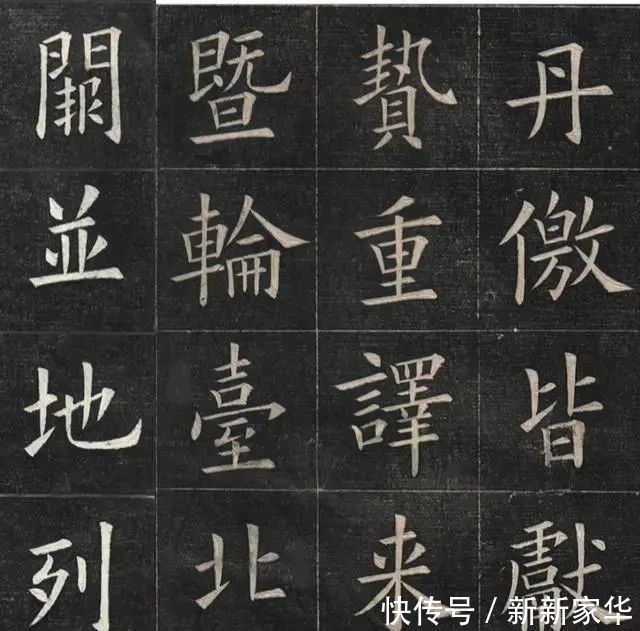 丹儌皆獻
贄重譯来
暨輪臺北
闕並地列
快传号 / 新新家华